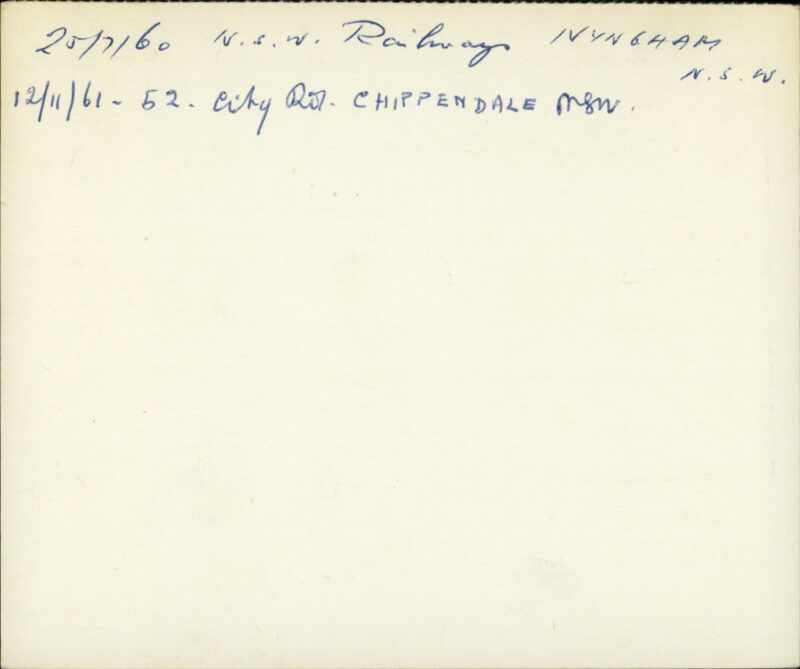 25/7/60 N.S.W. Railways NYNGHAM
N.S.W.
12/11/61 - 52. City Rd. CHIPPENDALE NSW.